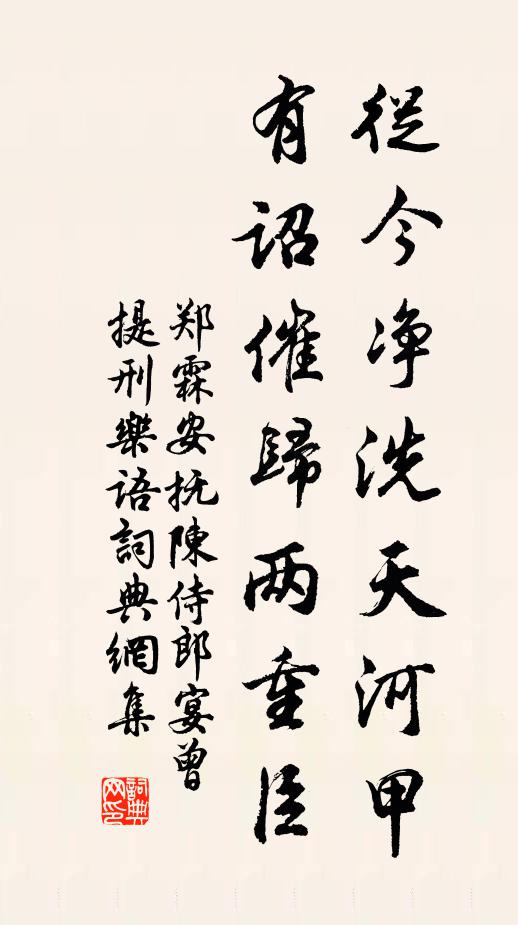 從今净洗天河甲
有詔催歸两重臣
郑霖安抚陳侍郎宴曾
提刑樂語詞典網集
詞典
网印